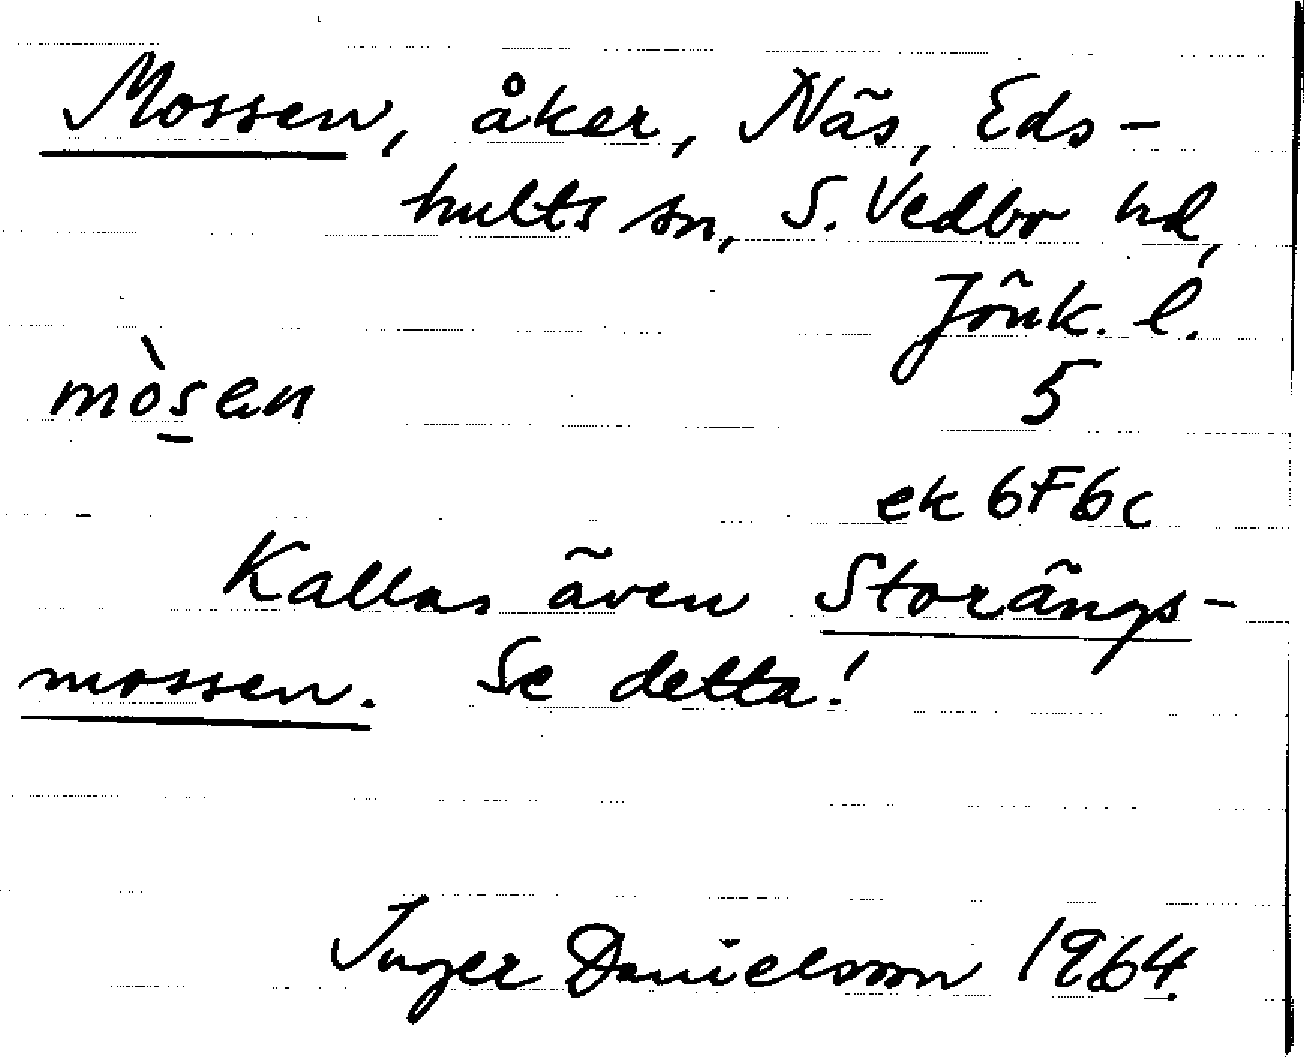 Mossen, åker, Näs, Eds-
hults sn, S. Vedbo hd,
Jönk. l.
mòs̲en
5
ek 6F6c
Kallas även Storängs-
mossen. Se detta!
Inger Danielsson 1964.